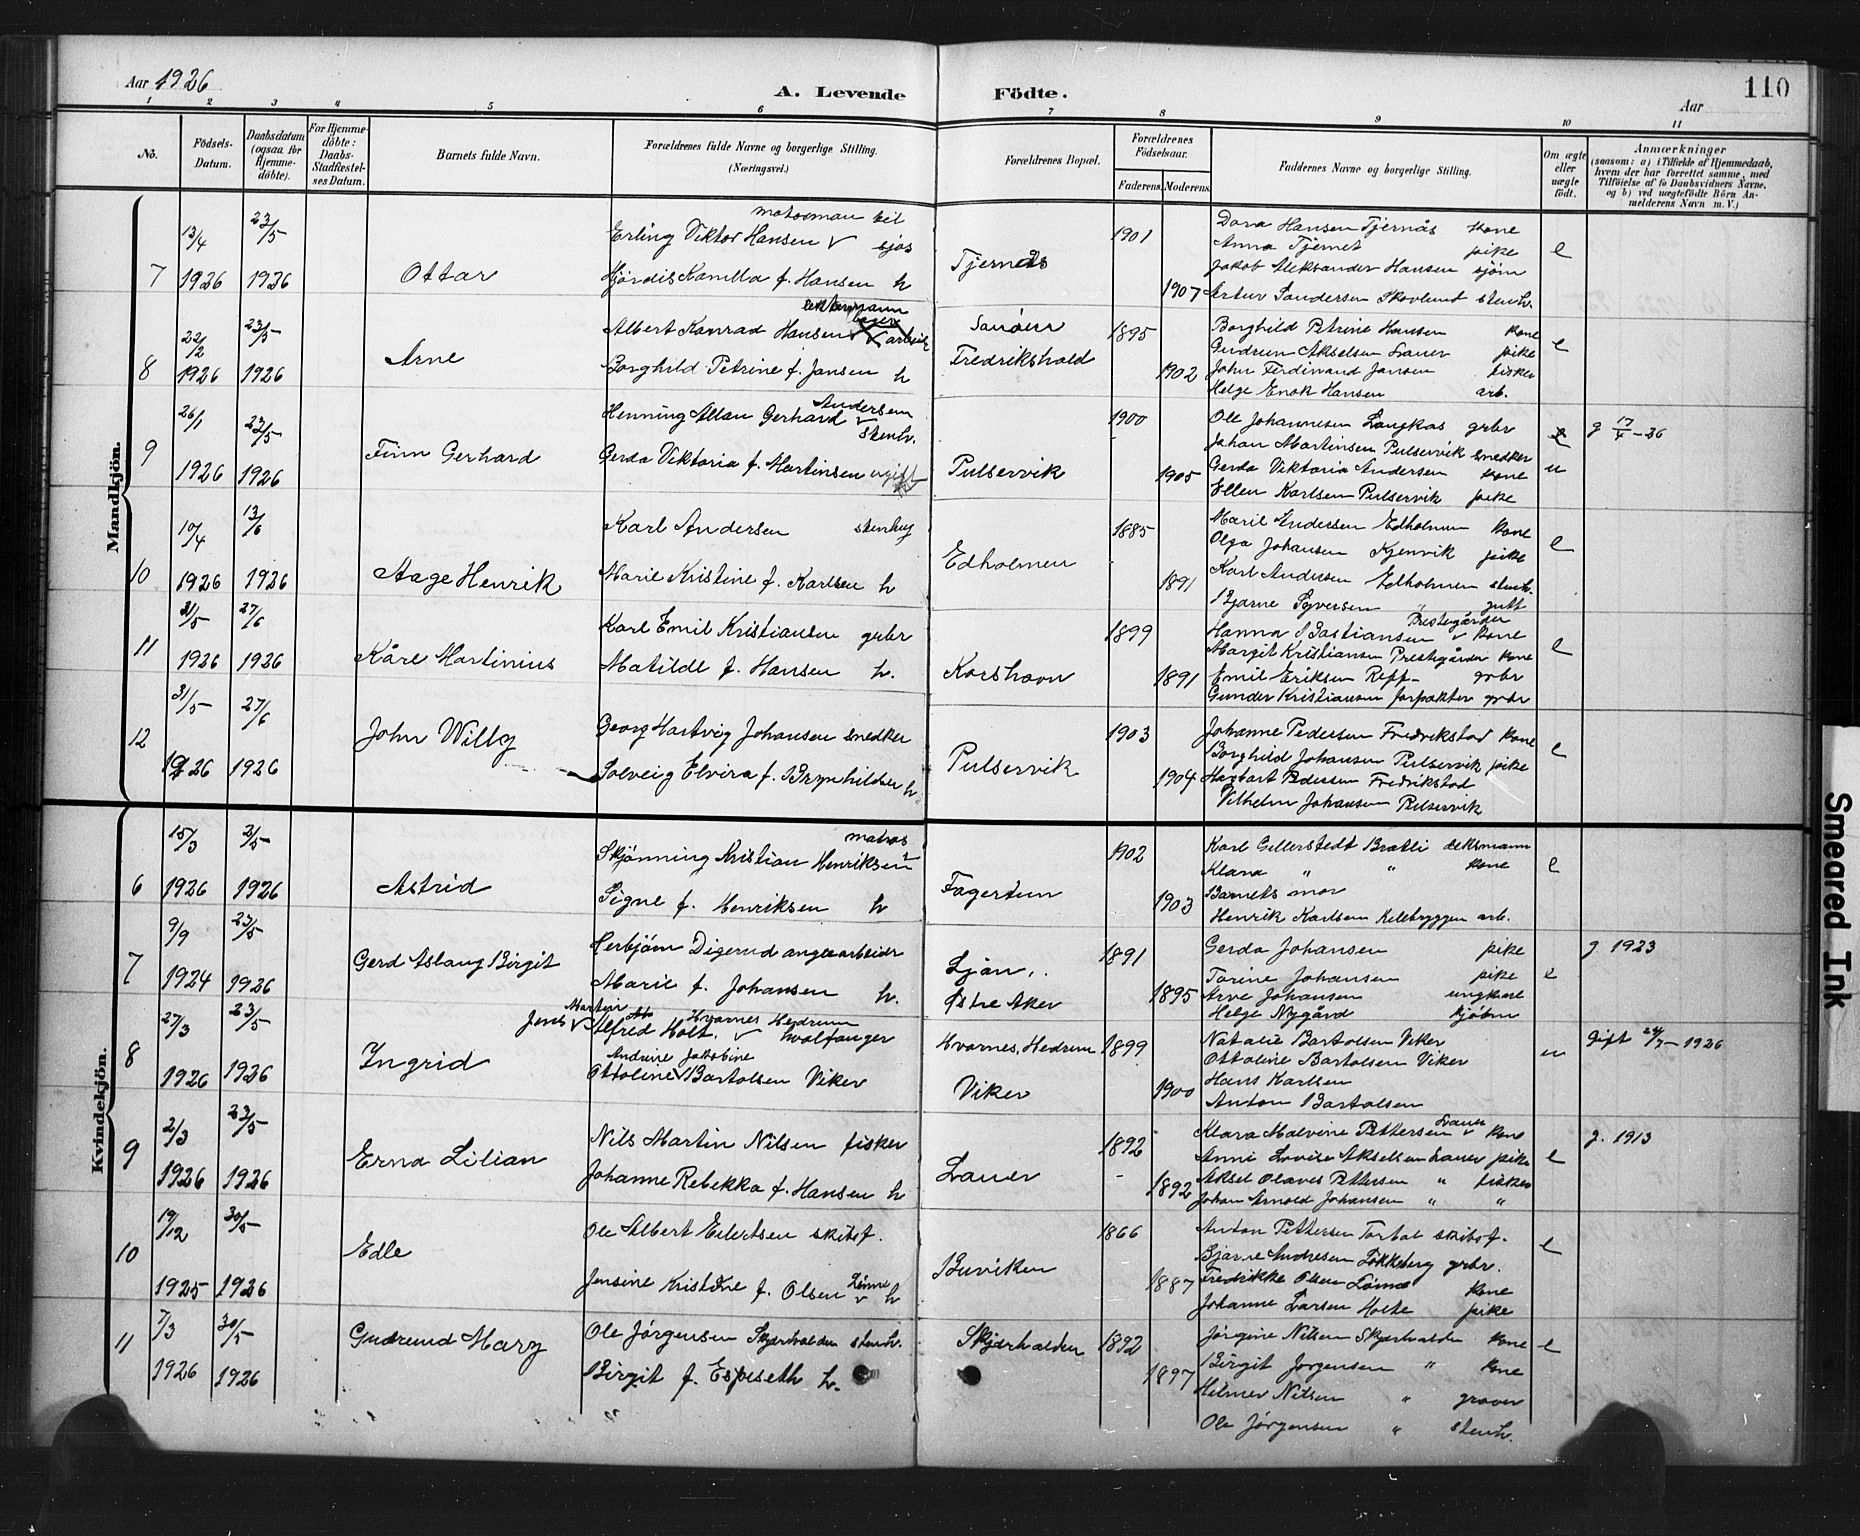 Aar 1926
A. Levende Födte.
Aar
110
1 2 3 4 5 6 7 8 9 10 11
No.
Födsels-Datum.
Daabsdatum (ogsaa for Hjemmedöbte).
For Hjemmedöbte: Daabs-Stadfæstelses Datum.
Barnets fulde Navn.
Forældrenes fulde Navne og borgerlige Stilling. (Næringsvei.)
Forældrenes Bopæl.
Forældrenes Födselsaar.
Faderens. Moderens.
Faddernes Navne og borgerlige Stilling.
Om ægte eller uægte födt.
Anmærkninger
(saasom: a) i Tilfælde af Hjemmedaab,
hvem der har forrettet samme, med
Tilföielse af to Daabsvidners Navne,
og b) ved uægtefödte Börn An-
melderens Navn m. V.)
Mandkjön.
7 13/4 1926 23/5 1926 Ottar
Erling Viktor Hansen
Hjördis Kamilla f. Hansen h
Tjernäs
1901 1907
Dora Hansen Tjernås kone
Anna Tjernet pike
Jakob Aleksander Hansen sjöm
Artur Sandersen Skovlund stenh.
e
8 22/2 1926 23/5 1926 Arne
Albert Konrad Hansen
Borghild Petrine f. Jansen h
Sandem
Fredrikshald
1895 1902
Borghild Petrine Hansen kone
Gudrun Akselsen Lauer pike
John Ferdinand Jansen fisker
Helge Enok Hansen arb.
e
9 26/1 1926 23/5 1926 Finn Gerhard
Henning Allan Gerhard Andersen stenh.
Gerda Viktoria f. Martinsen ugift
Pulservik
1900 1905
Ole Johannesen Langkas grbr
Johan Martinsen Pulservik snedker
Gerda Viktoria Andersen kone
Ellen Karlsen Pulservik pike
u
g 17/4 - 26
10 10/4 1926 13/6 1926 Aage Henrik
Karl Andersen stenhug
Marie Kristine f. Karlsen h
Edholmen
1885 1891
Marie Andersen Edholmen kone
Olga Johansen Kjenvik pike
Karl Andersen Edholmen stenh.
Bjarne Syversen " gutt
e
11 31/5 1926 27/6 1926 Kåre Martinius
Karl Emil Kristiansen grbr
Matilde f. Hansen h.
Korshavn
1899 1891
Prestegården
Hanna Bastiansen kone
Margit Kristiansen Prestegården kone
Emil Eriksen Reff- grbr
Gunder Kristiansen forpakter grbr
e
12 31/5 1926 27/6 1926 John Willy
Georg Hartvig Johansen snedker
Solveig Elvira f. Brynhildsen h.
Pulservik
1903 1904
Johanne Pedersen Fredrikstad kone
Borghild Johansen Pulservik pike
Hagbart Pedersen Fredrikstad
Vilhelm Johansen Pulservik
e
Kvindekjön.
6 15/3 1926 2/5 1926 Astrid
matros
Skjönning Kristian Henriksen
Signe f. Henriksen h
Fagertun
1902 1903
Karl Gellerstedt Bratli deksmann
Klara " " kone
Barnets mor
Henrik Karlsen Kilebryggen arb.
e
7 9/9 1924 23/5 1926 Gerd Aslaug Birgit
Herbjörn Digerud
Marie f. Johansen h.
Ljan,
Östre Aker
1891 1895
Gerda Johansen pike
Torine Johansen pike
Arve Johansen ungkarl
Helge Nygård sjöm
e
g. 1923
8 27/3 1926 23/5 1926 Ingrid
Jens Martin Alfred Holt. Hvarnes Hedrum hvalfanger
Andrine Jakobine
Ottoline Bartolsen Viker
Hvarnes, Hedrum
Viker
1899 1900
Natalie Bartolsen Viker
Ottoline Bartolsen Viker
Hans Karlsen
Anton Bartolsen
u
Gift 24/7 - 1926
9 2/3 1926 23/5 1926 Erna Lilian
Nils Martin Nilsen fisker
Johanne Rebekka f. Hansen h
Lauer
1892 1892
Klara Malvine Pettersen Lauer kone
Anni Lovise Akselsen Lauer pike
Aksel Olaves Pettersen " fisker
Johan Arnold Johansen " "
e
g. 1913
10 19/12 1925 30/5 1926 Edle
Ole Albert Eilertsen skibsf.
Jensine Kristine f. Olsen h
Buviken
1866 1887
Anton Pettersen Torbal skibsf.
Bjarne Andresen Lökkeberg grbr.
Fredrikke Olsen kone
Johanne Larsen Holte pike
e
11 7/3 1926 30/5 1926 Gudrund Mary
Ole Jörgensen Skjærhalden stenh.
Birgit f. Espeseth h.
Skjærhalden
1892 1897
Jörgine Nilsen Skjærhalden kone
Birgit Jörgensen " kone
Hilmer Nilsen " graver
Ole Jörgensen " stenh.
e
Smeared Ink